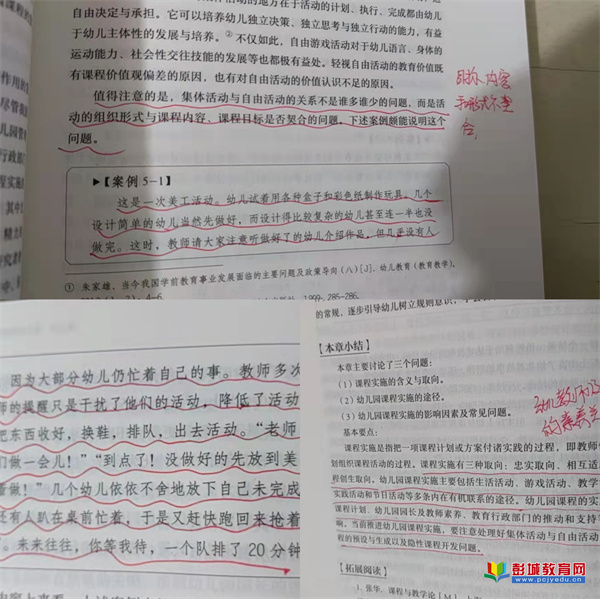 自由决定与承担。它可以培养幼儿独立决策、独立思考与独立行动的能力,有益
于幼儿主体性的发展与培养。②不仅如此,自由游戏活动对于幼儿语言、身体的
运动能力、社会性交往技能的发展等也都极有益处。轻视自由活动的教育价值既
有课程价值观偏差的原因,也有对自由活动的价值认识不足的原因。
值得注意的是,集体活动与自由活动的关系不是谁多谁少的问题,而是活
动的组织形式与课程内容、课程目标是否契合的问题。下述案例颇能说明这个
问题。
目标、内容
合
▶【案例 5-1】
这是一次美工活动。幼儿试着用各种盒子和彩色纸制作玩具。几个
设计简单的幼儿当然先做好,而设计得比较复杂的幼儿甚至连一半也没
做完。这时,教师请大家注意听做好了的幼儿介绍作品,但几乎没有人
① 朱家雄.当今我国学前教育事业发展面临的主要问题及政策导向(八)[J].幼儿教育(教育教学),
1999:285-286.
因为大部分幼儿仍忙着自己的事。教师多次
的提醒只是干扰了他们的活动,降低了活动
把东西收好,换鞋,排队,出去活动。“老师
们做一会儿!”“到点了!没做好的先放到美
着做!”几个幼儿依依不舍地放下自己未完成
还有人趴在桌前忙着,于是又赶快跑回来抢着
。来来往往,你等我待,一个队排了 20 分钟
的常规,逐步引导幼儿树立规则意识,
【本章小结】
本章主要讨论了三个问题:
(1)课程实施的含义与取向。
(2)幼儿园课程实施的途径。
(3)幼儿园课程实施的影响因素及常见问题。
基本要点:
课程实施是指把一项课程计划或方案付诸实践的过程,即教师
划组织课程活动的过程。课程实施有三种取向:忠实取向、相互适
程创生取向。幼儿园课程实施的途径主要包括生活活动、游戏活动、教学
实践活动和节日活动等多条内在有机联系的途径。幼儿园课程的实
课程计划、幼儿园园长及教师素养、教育行政部门的推动和支持等
响。当前推进幼儿园课程实施,要注意处理好集体活动与自由活动
程的预设与生成以及隐性课程开发问题。
幼教师
的素养
【拓展阅读】
1. 张华. 课程与教学论[M].
彭城教育网
www.pcjyedu.cn